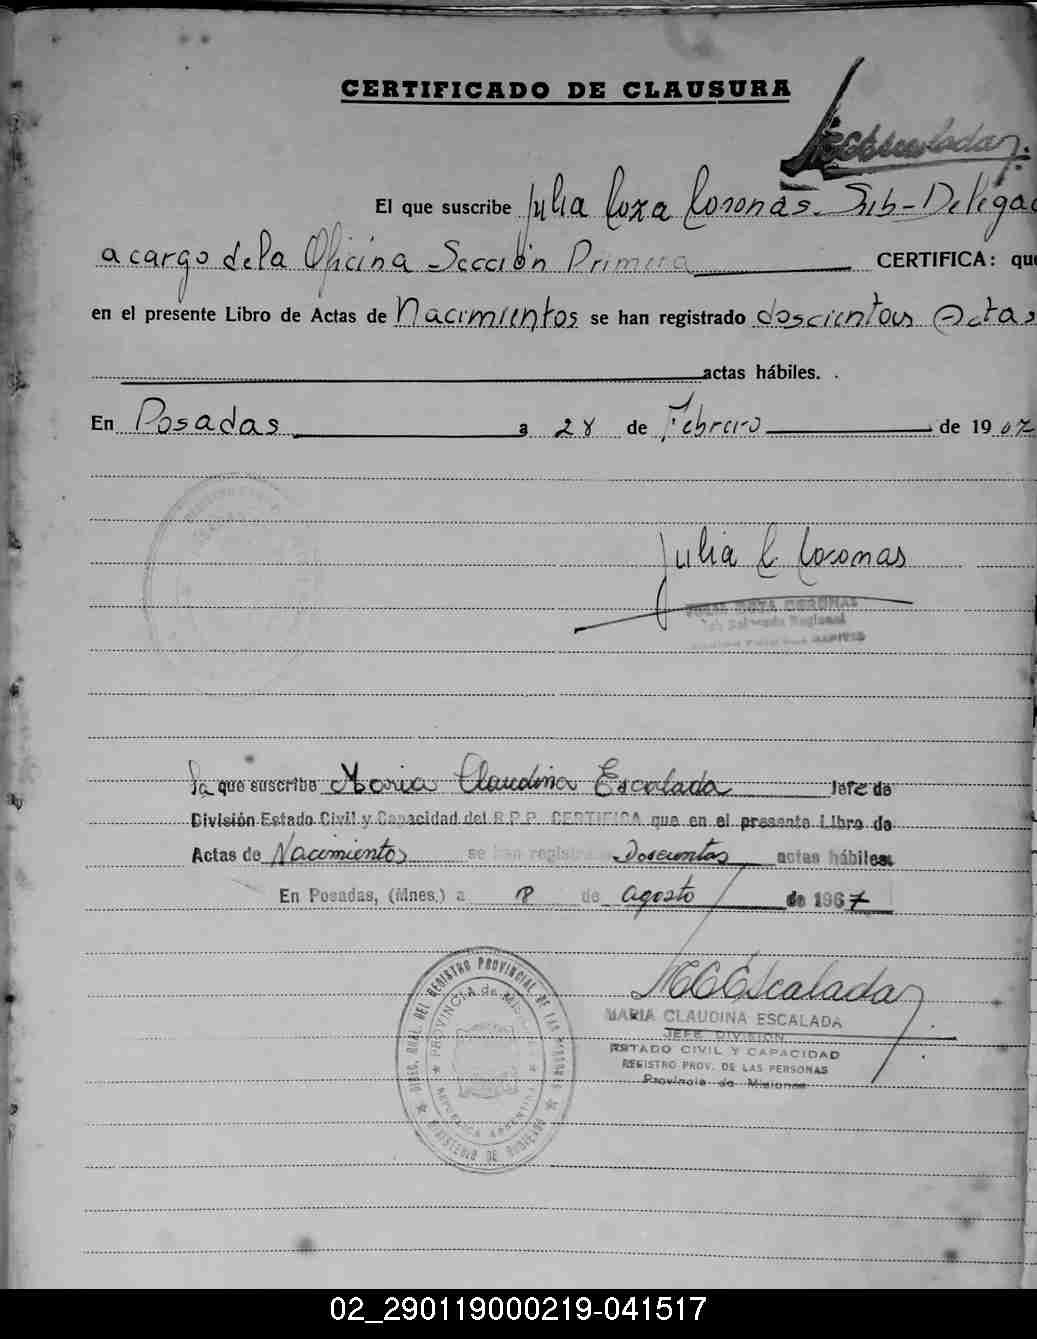 CERTIFICADO DE CLAUSURA
MCCEscalada
El que suscribe Julia Coxa Coronas. Sub-Delegad
a cargo de la Oficina Sección Primera CERTIFICA: que
en el presente Libro de Actas de Nacimientos se han registrado doscientas Actas
actas hábiles.
En Posadas a 28 de Febrero de 1967
Julia C Coronas
Sub Delegada Regional
la que suscribe Maria Claudina Escalada Jefe de
División Estado Civil y Capacidad del R.P.P. CERTIFICA que en el presente Libro de
Actas de Nacimientos se han registrado Doscientas actas hábiles.
En Posadas, (Mnes.) a 8 de agosto de 1967
MCCEscalada
MARIA CLAUDINA ESCALADA
JEFE DIVISION
ESTADO CIVIL Y CAPACIDAD
REGISTRO PROV. DE LAS PERSONAS
Provincia de Misiones
DIREC. GRAL. DEL REGISTRO PROVINCIAL DE LAS PERSONAS
PROVINCIA de MISIONES
REPUBLICA ARGENTINA
MINISTERIO DE GOBIERNO
02_290119000219-041517